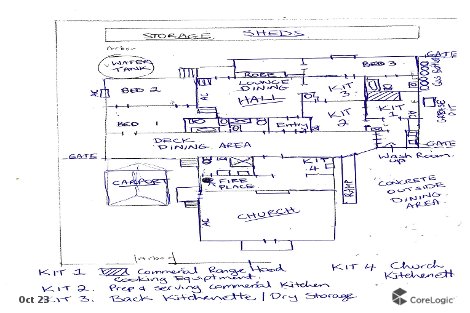 STORAGE SHEDS
WATER
TANK
GATE
BED 3
ROBE
LOUNGE
DINING
HALL
BED 2
AC
KIT
3
KIT
1
KIT
2
BED 1
Entry
DECK
DINING AREA
GATE
GATE
Wash Room
KIT
4
CARPORT
FIRE
PLACE
RAMP
CONCRETE
OUTSIDE
DINING
AREA.
AC
CHURCH
KIT 1 Commercial Range Hood
Cooking Equiptment.
KIT 4 Church
Kitchenett
KIT 2. Prep & serving commercial Kitchen
KIT 3. Back Kitchenette / Dry Storage.
Oct 23
CoreLogic